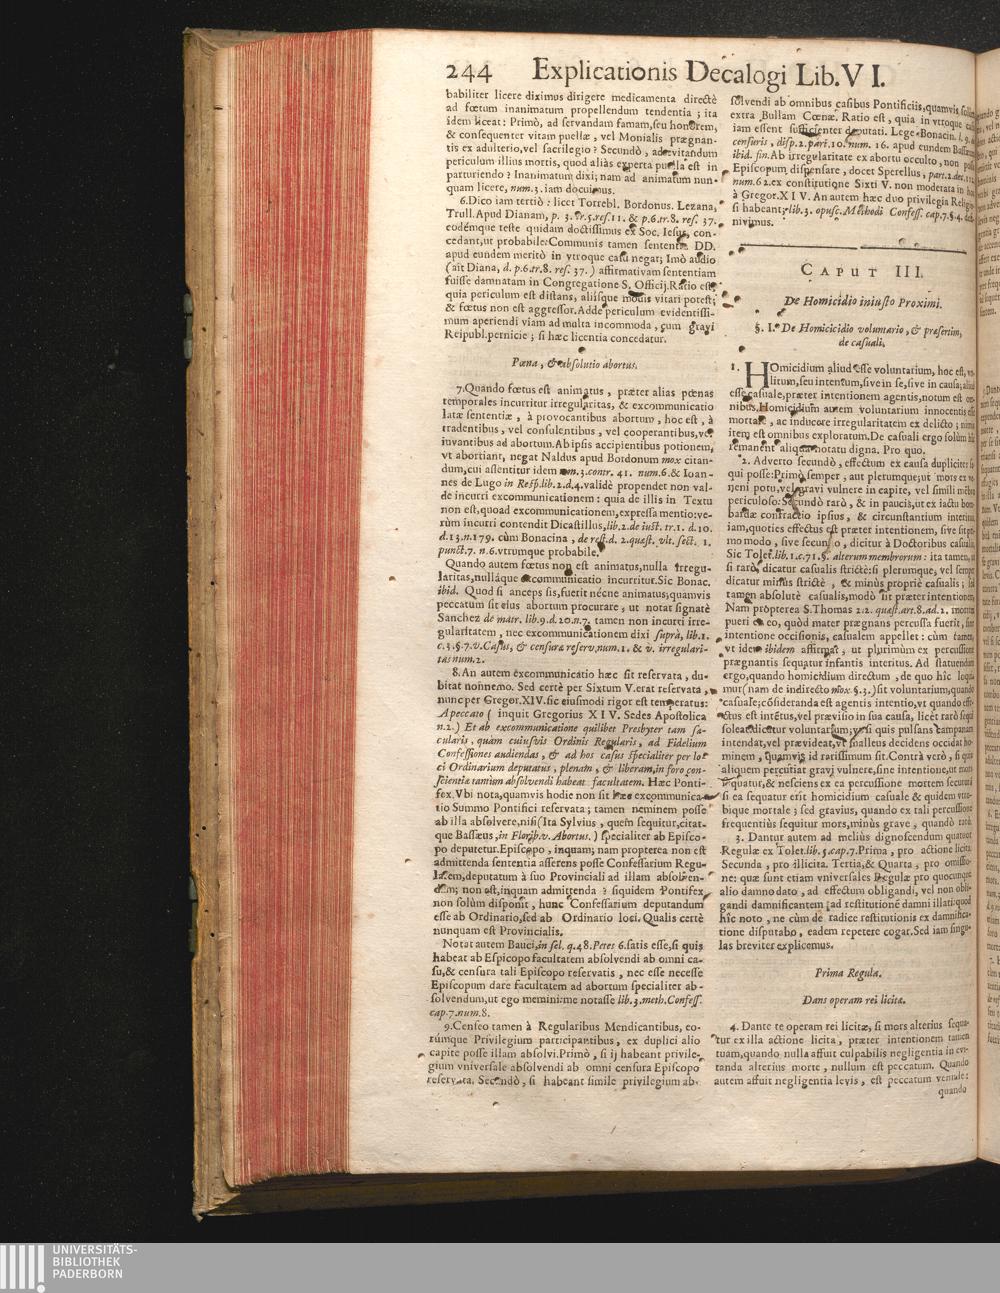 244 Explicationis Decalogi Lib. VI.
babiliter licere diximus dirigere medicamenta directè
ad fœtum inanimatum propellendum tendentia; ita
idem liceat: Primò, ad servandam famam, seu honorem,
& consequenter vitam puellæ, vel Monialis prægnan-
tis ex adulterio, vel sacrilegio? Secundò, ad evitandum
periculum illius mortis, quod aliàs experta puella est in
parturiendo? Inanimatum dixi; nam ad animatum nun-
quam licere, num. 3. iam docuimus.
6. Dico iam tertiò: licet Torrebl. Bordonus. Lezana,
Trull. Apud Dianam, p. 3. tr. 5. res. 11. & p. 6. tr. 8. res. 37.
eodémque teste quidam doctissimus ex Soc. Iesu, con-
cedant, ut probabile: Communis tamen sententia DD.
apud eundem meritò in vtroque casu negat; Imò audio
(ait Diana, d. p. 6. tr. 8. res. 37.) affirmativam sententiam
fuisse damnatam in Congregatione S. Officij. Ratio est,
quia periculum est distans, aliísque modis vitari potest;
& fœtus non est aggressor. Adde periculum evidentissi-
mum aperiendi viam ad multa incommoda, cum gravi
Reipubl. pernicie; si hæc licentia concedatur.
Pœna, & absolutio abortus.
7. Quando fœtus est animatus, præter alias pœnas
temporales incurritur irregularitas, & excommunicatio
latæ sententiæ, à provocantibus abortum, hoc est, à
tradentibus, vel consulentibus, vel cooperantibus, vel
iuvantibus ad abortum. Ab ipsis accipientibus potionem,
vt abortiant, negat Naldus apud Bordonum mox citan-
dum, cui assentitur idem tom. 3. contr. 41. num. 6. & Ioan-
nes de Lugo in Resp. lib. 2. d. 4. validè propendet non val-
de incurri excommunicationem: quia de illis in Textu
non est, quoad excommunicationem, expressa mentio: ve-
rùm incurri contendit Dicastillus, lib. 2. de iust. tr. 1. d. 10.
d. 13. n. 179. cùm Bonacina, de rest. d. 2. quæst. vlt. sect. 1.
punct. 7. n. 6. vtrumque probabile.
Quando autem fœtus non est animatus, nulla irregu-
laritas, nulláque excommunicatio incurritur. Sic Bonac.
ibid. Quod si anceps sis, fuerit nécne animatus; quamvis
peccatum sit eius abortum procurare, ut notat signatè
Sanchez de matr. lib. 9. d. 20. n. 7. tamen non incurri irre-
gularitatem, nec excommunicationem dixi suprà, lib. 1.
c. 3. §. 7. v. Casus, & censura reserv. num. 1. & v. irregulari-
tas num. 2.
8. An autem excommunicatio hæc sit reservata, du-
bitat nonnemo. Sed certè per Sixtum V. erat reservata,
nunc per Gregor. XIV. sic eiusmodi rigor est temperatus:
A peccato (inquit Gregorius XIV. Sedes Apostolica
n. 2.) Et ab excommunicatione quilibet Presbyter tam sæ-
cularis, quàm cuiusvis Ordinis Regularis, ad Fidelium
Confessiones audiendas, & ad hos casus specialiter per lo-
ci Ordinarium deputatus, plenam, & liberam, in foro con-
scientiæ tantùm absolvendi habeat facultatem. Hæc Ponti-
fex. Vbi nota, quamvis hodie non sit hæc excommunica-
tio Summo Pontifici reservata; tamen neminem posse
ab illa absolvere, nisi (Ita Sylvius, quem sequitur, citat-
que Bassæus, in Flor. v. Abortus.) specialiter ab Episco-
po deputetur. Episcopo, inquam; nam propterea non est
admittenda sententia asserens posse Confessarium Regu-
larem, deputatum à suo Provinciali ad illam absolven-
dam; non est, inquam admittenda? siquidem Pontifex
non solùm disponit, hunc Confessarium deputandum
esse ab Ordinario, sed ab Ordinario loci. Qualis certè
nunquam est Provincialis.
Notat autem Bauci, in sel. q. 48. Petes 6. satis esse, si quis
habeat ab Espicopo facultatem absolvendi ab omni ca-
su, & censura tali Episcopo reservatis, nec esse necesse
Episcopum dare facultatem ad abortum specialiter ab-
solvendum, ut ego memini me notasse lib. 3. meth. Confess.
cap. 7. num. 8.
9. Censeo tamen à Regularibus Mendicantibus, eo-
rúmque Privilegium participantibus, ex duplici alio
capite posse illam absolvi. Primò, si ij habeant privile-
gium vniversale absolvendi ab omni censura Episcopo
reservata. Secundò, si habeant simile privilegium ab-
solvendi ab omnibus casibus Pontificiis, quamvis
extra Bullam Cœnæ. Ratio est, quia in vtroque
iam essent sufficienter deputati. Lege Bonacin.
censuris, disp. 2. part. 10. num. 16. apud eundem
ibid. fin. Ab irregularitate ex abortu occulto, non
Episcopum dispensare, docet Sperellus, part. 2. dec.
num. 62. ex constitutione Sixti V. non moderata in hoc
à Gregor. XIV. An autem hæc duo privilegia
si habeant; lib. 3. opusc. Methodi Confess. cap. 7. §. 4.
nivimus.
CAPUT III.
De Homicidio iniusto Proximi.
§. I. De Homicicidio voluntario, & præsertim,
de casuali.
1. HOmicidium aliud esse voluntarium, hoc est, vo-
litum, seu intentum, sive in se, sive in causa; aliud
esse casuale, præter intentionem agentis, notum est om-
nibus. Homicidium autem voluntarium innocentis esse
mortale, ac inducere irregularitatem ex delicto; nimis
item est omnibus exploratum. De casuali ergo solùm hîc
remanent aliqua notatu digna. Pro quo.
2. Adverto secundò, effectum ex causa dupliciter
qui posse: Primò semper, aut plerumque; ut mors ex
neni potu, vel gravi vulnere in capite, vel simili
periculoso: Secundò rarò, & in paucis, ut ex iactu bom-
bardæ confractio ipsius, & circunstantium interitus
iam, quoties effectus est præter intentionem, sive
mo modo, sive secundo, dicitur à Doctoribus casualis.
Sic Tolet. lib. 1. c. 71. §. alterum membrorum: ita tamen, ut
si rarò, dicatur casualis strictè: si plerumque, vel semper
dicatur minùs strictè, & minùs propriè casualis;
tamen absolutè casualis, modò sit præter intentionem.
Nam propterea S. Thomas 2. 2. quæst. art. 8. ad. 2. mortem
pueri ex eo, quòd mater prægnans percussa fuerit, sine
intentione occisionis, casualem appellet: cùm tamen,
vt idem ibidem affirmat, ut plurimùm ex percussione
prægnantis sequatur infantis interitus. Ad statuendum
ergo, quando homicidium directum, de quo hîc loqui-
mur (nam de indirecto mox. §. 3.) sit voluntarium, quando
casuale; cósideranda est agentis intentio, vt quando effe-
ctus est intétus, vel prævisio in sua causa, licèt rarò sequi
soleat, dicatur voluntarium; vt si quis pulsans campanam
intendat, vel prævideat, vt malleus decidens occidat ho-
minem, quamvis id ratissimum sit. Contrà verò, si quis
aliquem percutiat gravi vulnere, sine intentione, ut mors
sequatur, & nesciens ex ea percussione mortem secuturam,
si ea sequatur erit homicidium casuale & quidem vtro-
bique mortale; sed gravius, quando ex tali percussione
frequentiùs sequitur mors, minùs grave, quando rarò.
3. Dantur autem ad meliùs dignoscendum quatuor
Regulæ ex Tolet. lib. 5. cap. 7. Prima, pro actione licita.
Secunda, pro illicita. Tertia, & Quarta, pro omissio-
ne: quæ sunt etiam vniversales Regulæ pro quocunque
alio damno dato, ad effectum obligandi, vel non obli-
gandi damnificantem ad restitutioné damni illati: quod
hîc noto, ne cùm de radice restitutionis ex damnifica-
tione disputabo, eadem repetere cogar. Sed iam singu-
las breviter explicemus.
Prima Regula.
Dans operam rei licita.
4. Dante te operam rei licitæ, si mors alterius sequa-
tur ex illa actione licita, præter intentionem tamen
tuam, quando nulla affuit culpabilis negligentia in evi-
tanda alterius morte, nullum est peccatum. Quando
autem affuit negligentia levis, est peccatum veniale:
quando
UNIVERSITÄTS-
BIBLIOTHEK
PADERBORN